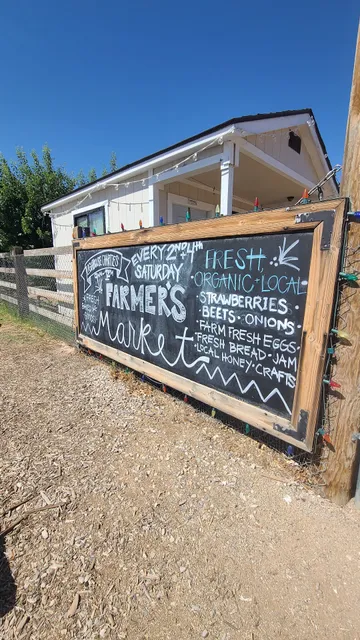 EVERY 2ND & 4TH
SATURDAY
FARMER'S
Market
FRESH,
ORGANIC · LOCAL
· STRAWBERRIES ·
· BEETS · ONIONS ·
· FARM FRESH EGGS ·
· FRESH BREAD · JAM
· LOCAL HONEY · CRAFTS